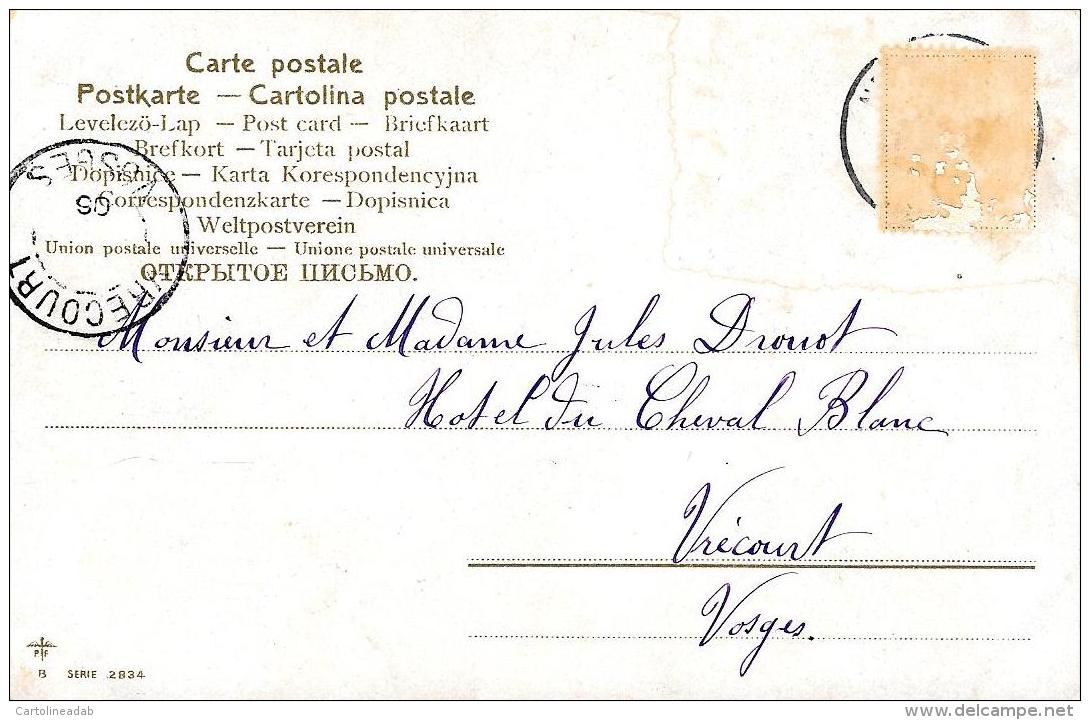 Carte postale
Postkarte — Cartolina postale
Levelező-Lap — Post card — Briefkaart
Brefkort — Tarjeta postal
Dopisnice — Karta Korespondencyjna
Correspondenzkarte — Dopisnica
Weltpostverein
Union postale universelle — Unione postale universale
ОТКРЫТОЕ ПИСЬМО.
VRECOURT
VOSGES
05
Monsieur et Madame Jules Drouot
Hotel du Cheval Blanc
Vrécourt
Vosges.
PF
B SERIE 2834
Cartolineadab
delcampe.net